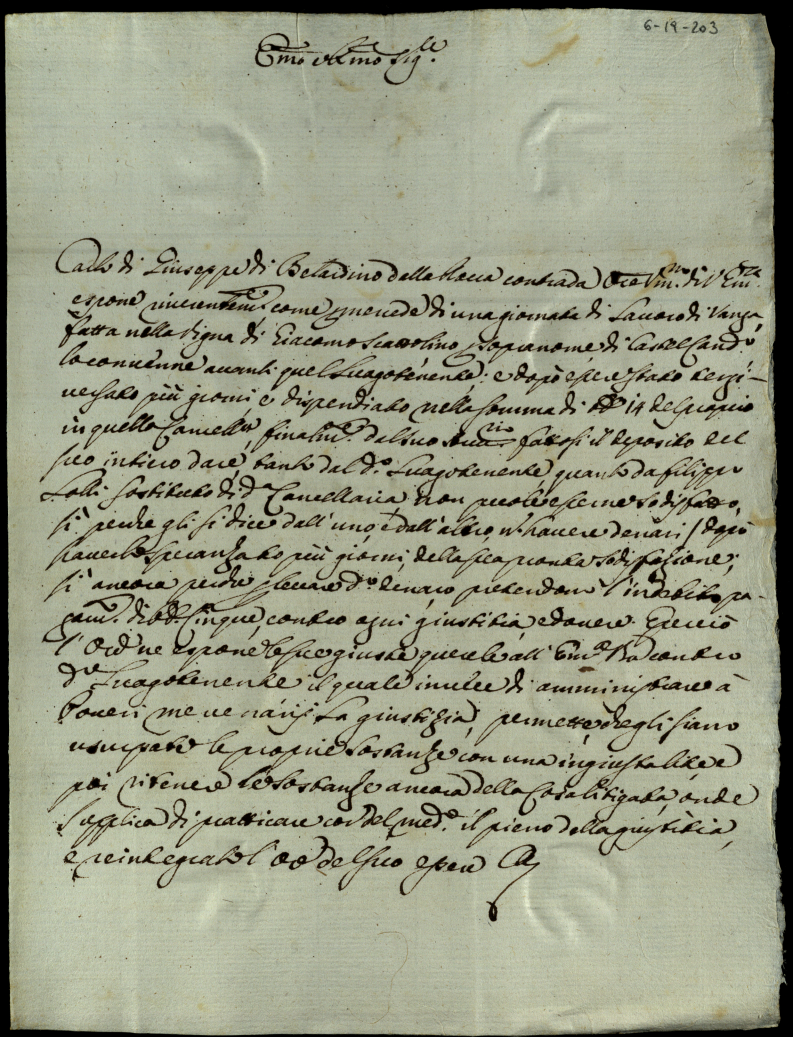 6-19-203
Emo e Rmo Sig.re
Carlo di Giuseppe di Belardino della Rocca contrada Ore Vm.o di V. Em.za
espone riverentem.e come p mercede di una giornata di Lavoro di Vanga
fatta nella Vigna di Giacomo Scattolino p sopranome di Castel Cand.o
lo convenne avanti quel Luogotenente; e dopo essere stato tergi-
versato più giorni e dispendiato nella somma di 14 del proprio
in quella Cancell.a, finalm.e dal suo fattosi il deposito del
suo intiero dare, tanto dal d.o Luogotenente, quanto da Filippo
Lolli sostituto di d.a Cancellaria non puole esserne sodisfatto,
sì perche gli si dice dall'uno e dall'altro n havere denari / dopo
haverlo speranzato più giorni della sua pronta sodisfazione;
sì ancora perche p levare d.o denaro pretendono l'indebito pa-
gam.o di cinque, contro ogni giustitia, e dovere. Perciò
l'Ord.ne espone le sue giuste querele all'Em.a V.ra contro
d.o Luogotenente il quale invece di amministrare à
Poveri mercenarij la giustizia, permette che gli siano
usurpate le proprie sostanze con una ingiusta lite e
poi ritenere le sostanze ancora della Cosa litigata, onde
supplica di pratticare cor del med.o il pieno della giustitia,
e reintegrato l'Ore del suo avere